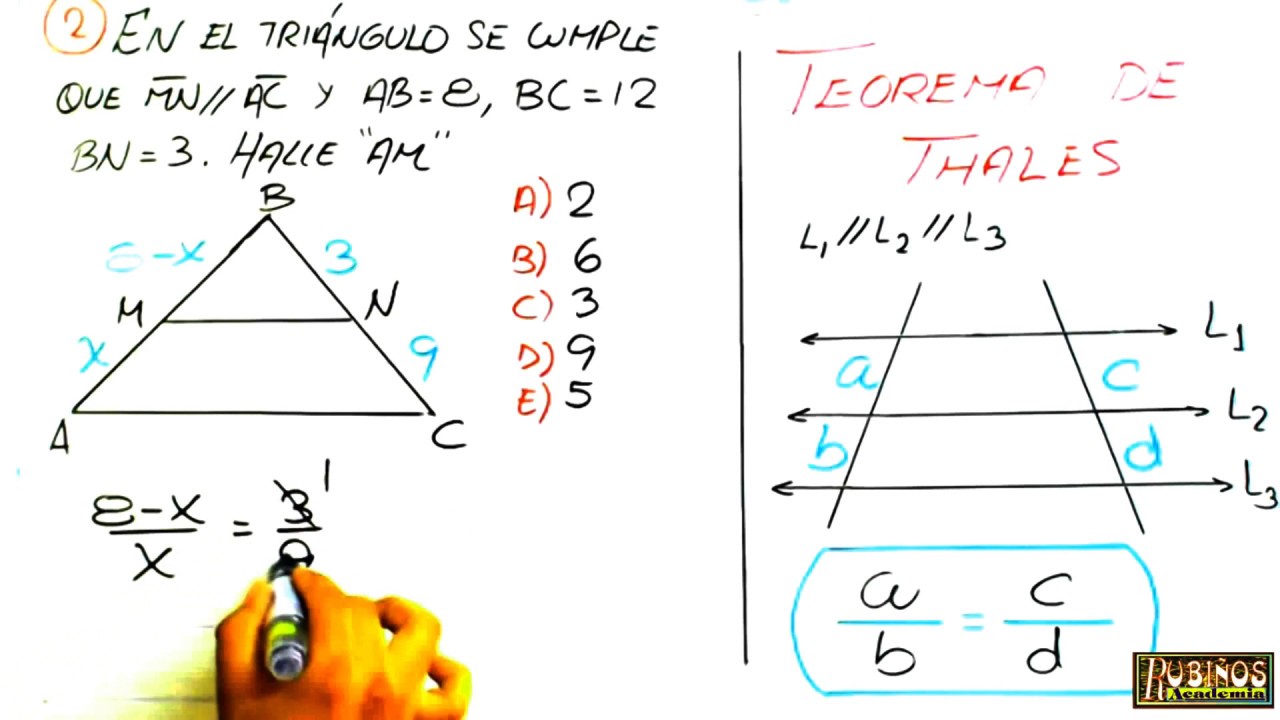 2 EN EL TRIÁNGULO SE CUMPLE
QUE MN // AC Y AB=8, BC=12
BN=3. HALLE "AM"
A) 2
B) 6
C) 3
D) 9
E) 5
B
8-x
3
M
N
x
9
A
C
8-x
x
=
3
1
9
TEOREMA DE
THALES
L1 // L2 // L3
L1
a
c
L2
b
d
L3
a
b
=
c
d
RUBIÑOS
Academia